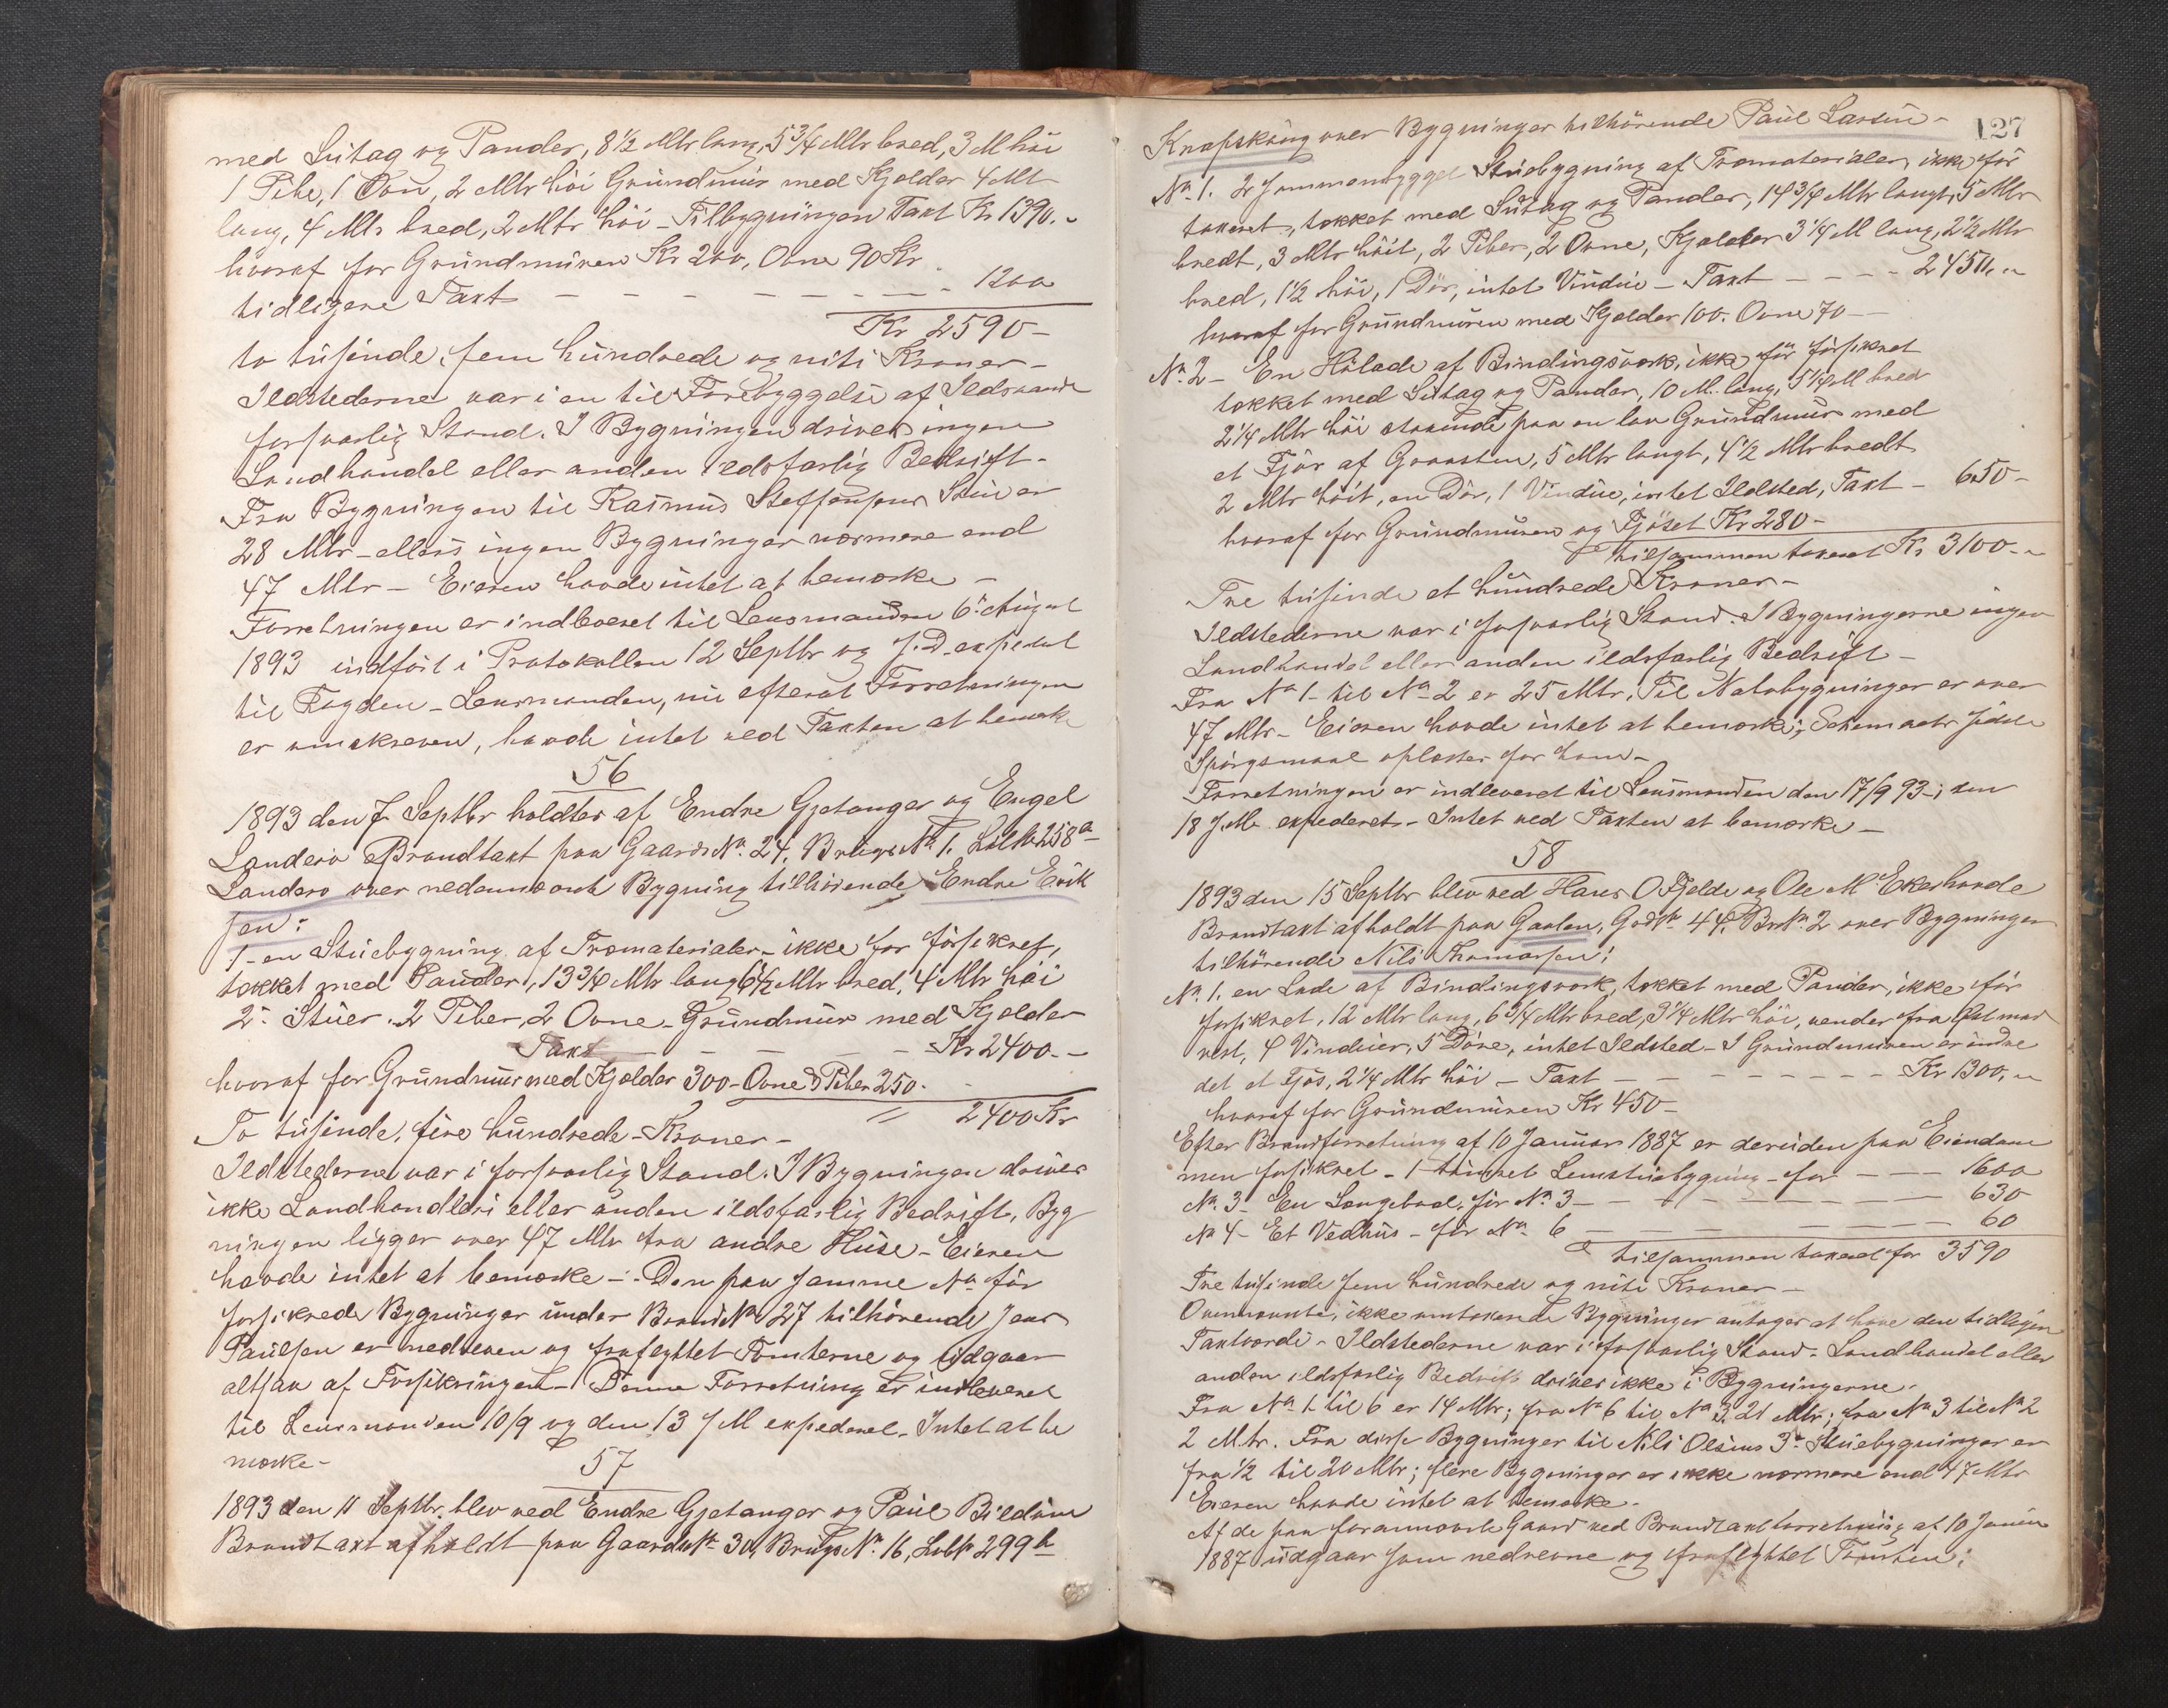 med Sutag og Pander, 8 1/2 Mtr lang, 5 3/4 Mtr bred, 3 M høi
1 Pibe, 1 Ovn, 2 Mtr høi Grundmur med Kjelder 4 Mt
lang, 4 Mtr bred, 2 Mtr høi - Tilbygningen Taxt Kr 1390.-
hvoraf for Grundmuren Kr 200, Ovne 90 Kr
tidligere Taxt - - - - - - - - 1200
Kr 2590-
to tusinde, fem hundrede og niti Kroner -
Ildstederne var i en til Forebyggelse af Ildsvaade
forsvarlig Stand. I Bygningen drives ingen
Landhandel eller anden ildsfarlig Bedrift.
Fra Bygningen til Rasmus Steffensens Stue er
28 Mtr - ellers ingen Bygninger nærmere end
47 Mtr - Eieren havde intet at bemærke -
Forretningen er indleveret til Lensmanden 6te August
1893 indført i Protokollen 12 Septbr og s. D. expedert
til Fogden - Lensmanden, nu efterat Forretningen
er omskreven, havde intet ved Taxten at bemærke
56
1893 den 7 Septbr holdtes af Endre Gjetanger og Engel
Landerø Brandtaxt paa Gaards No. 24, Brugs No 1. Løb No 258a
Landerø over nedennævnte Bygning tilhørende Endre Erik
sen:
1 - en Stuebygning af Træmaterialer - ikke før forsikret,
tækket med Pander, 13 3/4 Mtr lang 6 1/2 Mtr bred, 4 Mtr høi
2 Stuer. 2 Piber, 2 Ovne - Grundmur med Kjelder
Taxt - - - - - Kr 2400.-
hvoraf for Grundmur med Kjelder 300 - Ovne & Piber 250.
2400 Kr
To tusinde, fire hundrede - Kroner -
Ildstederne var i forsvarlig Stand. I Bygningen drives
ikke Landhandleri eller anden ildsfarlig Bedrift, Byg
ningen ligger over 47 Mtr fra andre Huse - Eieren
havde intet at bemærke -. Den paa samme No før
forsikrede Bygninger under Brand No 27 tilhørende Jens
Paulsen er nedreven og fraflyttet Tomterne og udgaar
altsaa af Forsikringen - Denne Forretning er indleveret
til Lensmanden 10/9 og den 13 s M expederet. Intet at be
mærke -
57
1893 den 11 Septbr. blev ved Endre Gjetanger og Paul Bildøen
Brandtaxt afholdt paa Gaards No 30, Brugs No. 16, Løb No 299 b
127
Knapskoug over Bygninger tilhørende Paul Larsen -
No. 1. 2 sammenbyggede Stuebygning af Træmaterialer, ikke før
taxeret, tækket med Sutag og Pander, 14 3/4 Mtr langt, 5 Mtr
bredt, 3 Mtr høit, 2 Piber, 2 Ovne, Kjelder 3 1/4 M lang, 2 1/2 Mtr
bred, 1 1/2 høi, 1 Dør, intet Vindue - Taxt - - - - 2450.-
hvoraf for Grundmuren med Kjelder 100. Ovne 70 -
No. 2 - En Hølade af Bindingsværk, ikke før forsikret
tækket med Sutag og Pander, 10 M. lang, 5 1/4 M bred
2 1/4 Mtr høi staaende paa en lav Grundmur med
et Fjøs af Graasten, 5 Mtr langt, 4 1/2 Mtr bredt
2 Mtr høit, en Dør, 1 Vindue, intet Ildsted, Taxt - 650-
hvoraf for Grundmuren og Fjøset Kr 280 -
tilsammen taxeret Kr 3100.-
Tre tusinde et hundrede Kroner -
Ildstederne var i forsvarlig Stand. I Bygningerne ingen
Landhandel eller anden ildsfarlig Bedrift -
Fra No 1 - til No 2 er 25 Mtr. Til Nabobygninger er over
47 Mtr - Eieren havde intet at bemærke; Schemaets sidste
Spørgsmaal oplæstes for ham -
Forretningen er indleveret til Lensmanden den 17/9 93 -; den
18 s. M. expederet - Intet ved Taxten at bemærke -
58
1893 den 15 Septbr blev ved Hans O Fjelde og Ole M Ekerhovde
Brandtaxt afholdt paa Gaalen, Gads No 44, Brs No. 2 over Bygninger
tilhørende Nils Thomassen:
No. 1. en Lade af Bindingsværk, tækket med Pander, ikke før
forsikret, 12 Mtr lang, 6 3/4 Mtr bred, 3 1/4 Mtr høi, vender fra Øst mod
vest, 4 Vinduer, 5 Døre, intet Ildsted - I Grundmuren er indre
det et Fjøs, 2 1/4 Mtr høi - Taxt - - - - - - - - Kr 1300.-
hvoraf for Grundmuren Kr 450 -
Efter Brandforretning af 10 Januar 1887 er desuden paa Eiendom
men forsikret - 1 tømret Lemstuebygning - for - - 1600
No. 3 - En Langebod, før No. 3 - - - - - - - 630
No 4 - Et Vedhus - før No. 6 - - - - - - 60
tilsammen taxeret for 3590
Tre tusinde fem hundrede og niti Kroner -
Ovennævnte, ikke omtaxerede Bygninger antages at have den tidligere
Taxtværdi - Ildstederne var i forsvarlig Stand. Landhandel eller
anden ildsfarlig Bedrift drives ikke i Bygningerne.
Fra No 1 til 6 er 14 Mtr; fra No 6 til No 3, 21 Mtr; fra No 3 til No 2
2 Mtr. Fra disse Bygninger til Nils Olsens 3de Stuebygninger er
fra 1/2 til 20 Mtr; flere Bygninger er ikke nærmere end 47 Mtr
Eieren havde intet at bemærke -
Af de paa forannævnte Gaard ved Brandtaxtforretning af 10 Janua
1887 udgaar som nedrevne og fraflyttet Tomten: